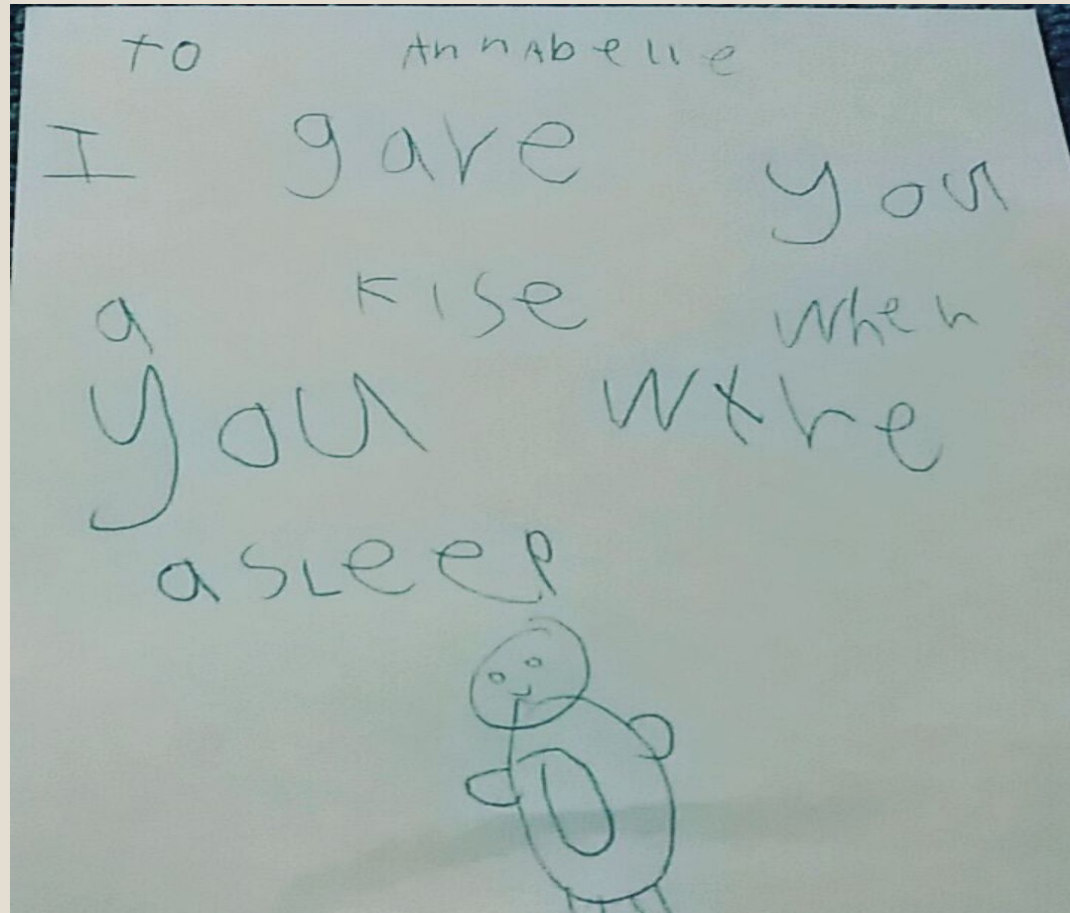 to AnnAbelle
I gave you
a Kise when
you wthe
asleep